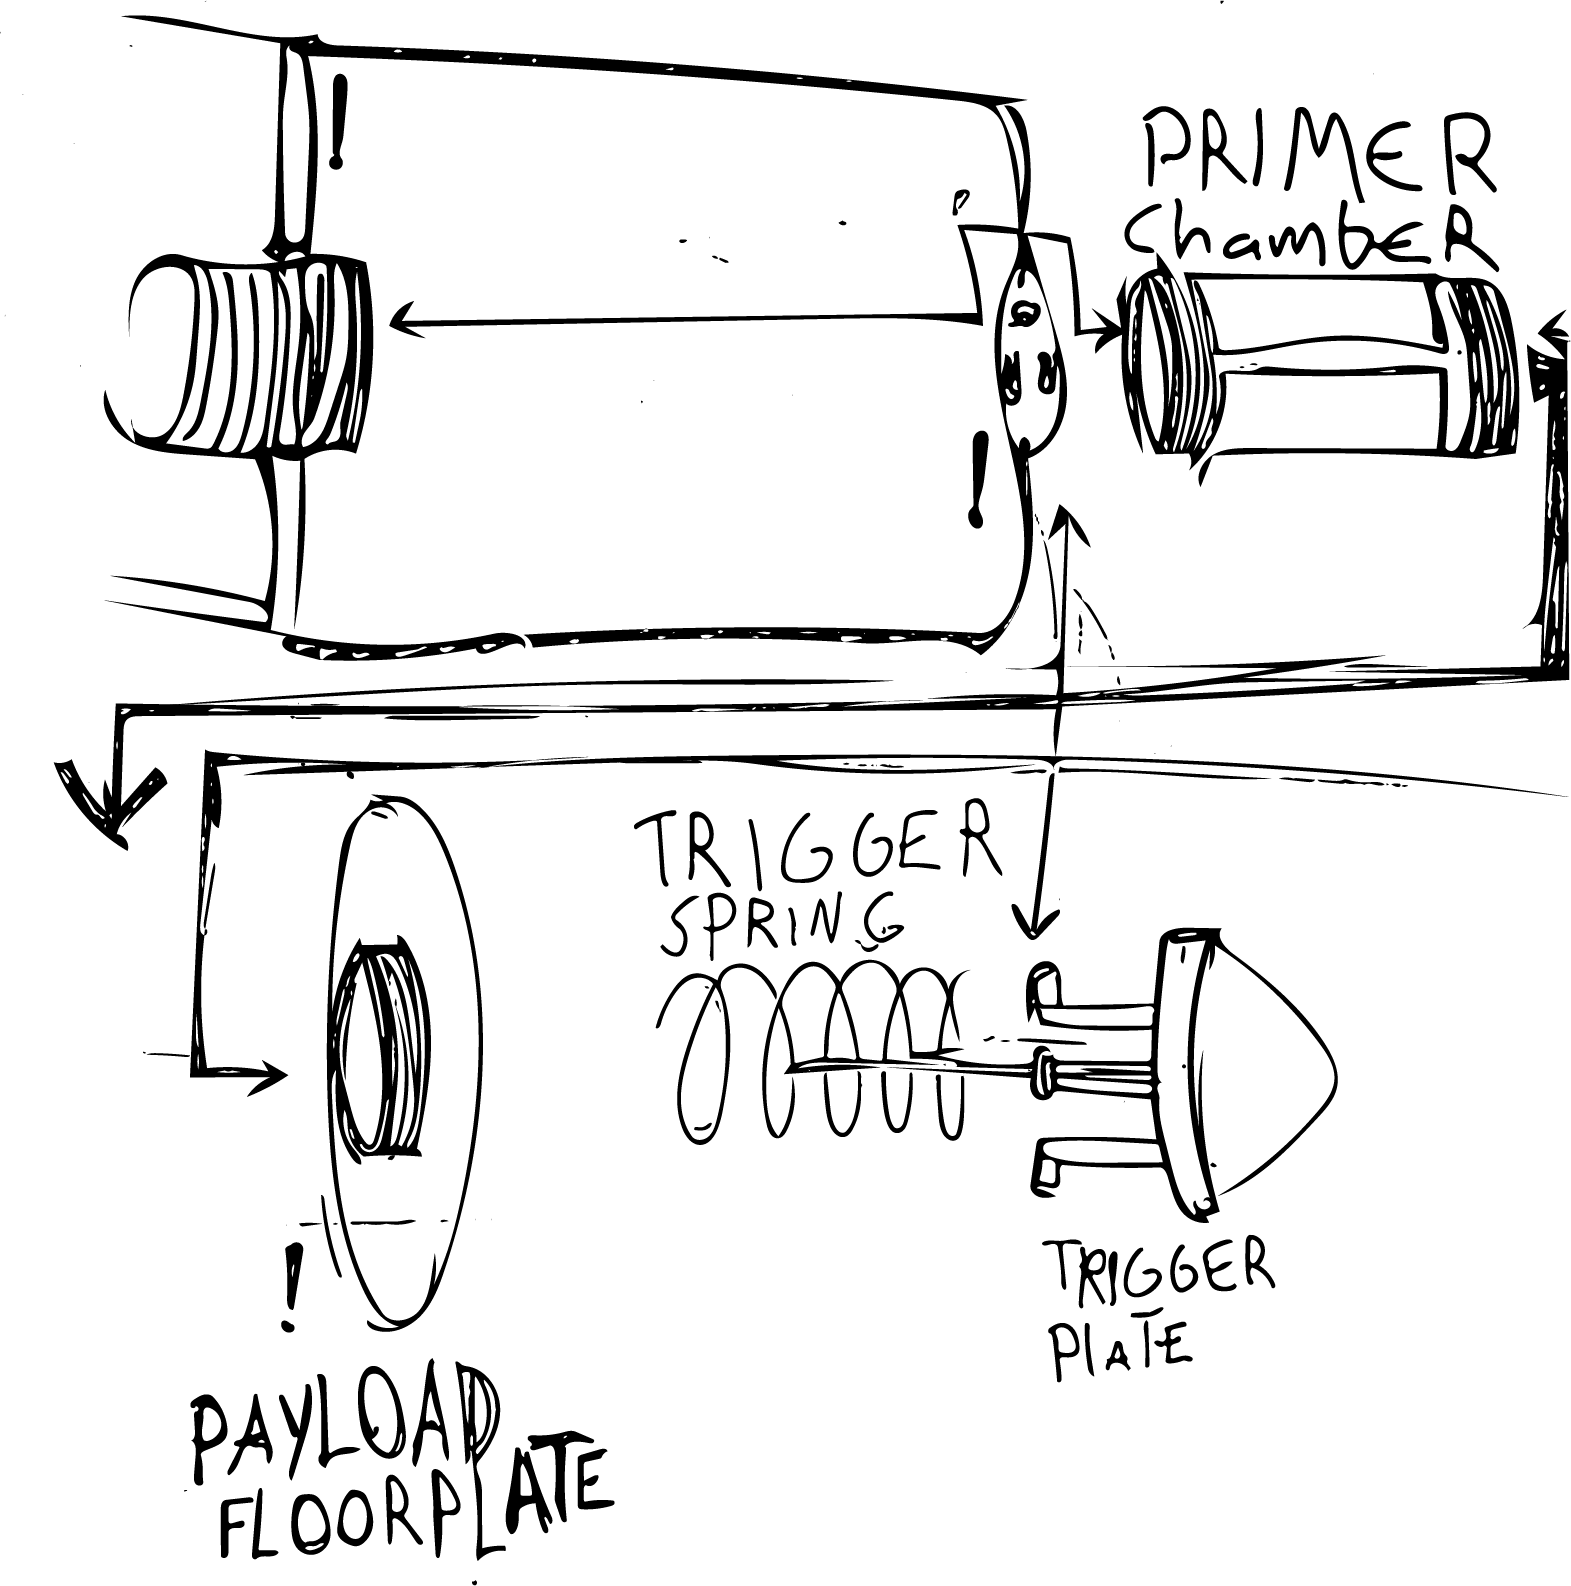 !
PRIMER
ChambER
!
TRIGGER
SPRING
!
TRIGGER
PlaTE
PAYLOAD
FLOORPLATE